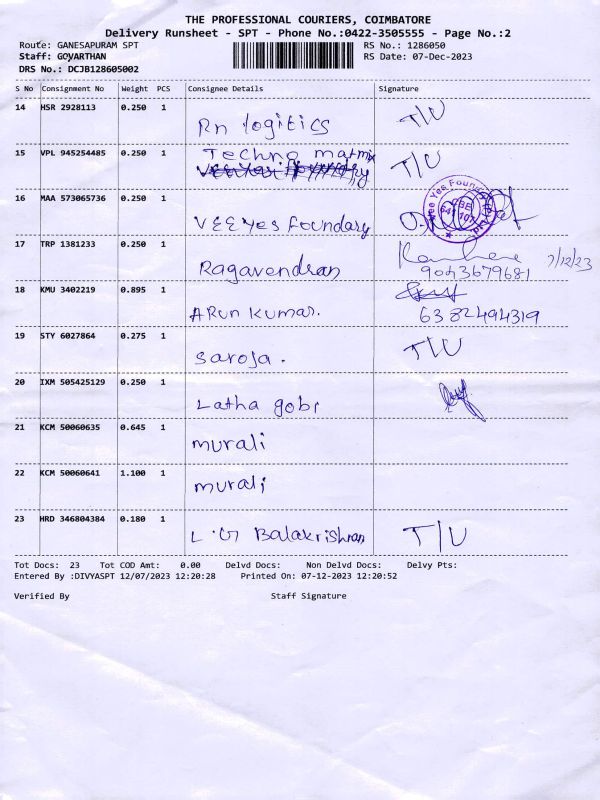 THE PROFESSIONAL COURIERS, COIMBATORE
Delivery Runsheet - SPT - Phone No.:0422-3505555 - Page No.:2
Route: GANESAPURAM SPT RS No.: 1286050
Staff: GOYARTHAN RS Date: 07-Dec-2023
DRS No.: DCJB128605002
S No Consignment No Weight PCS Consignee Details Signature
14 HSR 2928113 0.250 1 Rn logitics T/U
15 VPL 945254485 0.250 1 Techno matrix T/U
16 MAA 573065736 0.250 1 VEE Yes Foundary
Vee Yes Foundry
CBE
641 107
17 TRP 1381233 0.250 1 Ragavendran 7/12/23
9043679681
18 KMU 3402219 0.895 1 ARun kumar. 6382494319
19 STY 6027864 0.275 1 Saroja. T/U
20 IXM 505425129 0.250 1 Latha gobi
21 KCM 50060635 0.645 1 murali
22 KCM 50060641 1.100 1 murali
23 HRD 346804384 0.180 1 L.G Balakrishnan T/U
Tot Docs: 23 Tot COD Amt: 0.00 Delvd Docs: Non Delvd Docs: Delvy Pts:
Entered By :DIVYASPT 12/07/2023 12:20:28 Printed On: 07-12-2023 12:20:52
Verified By Staff Signature